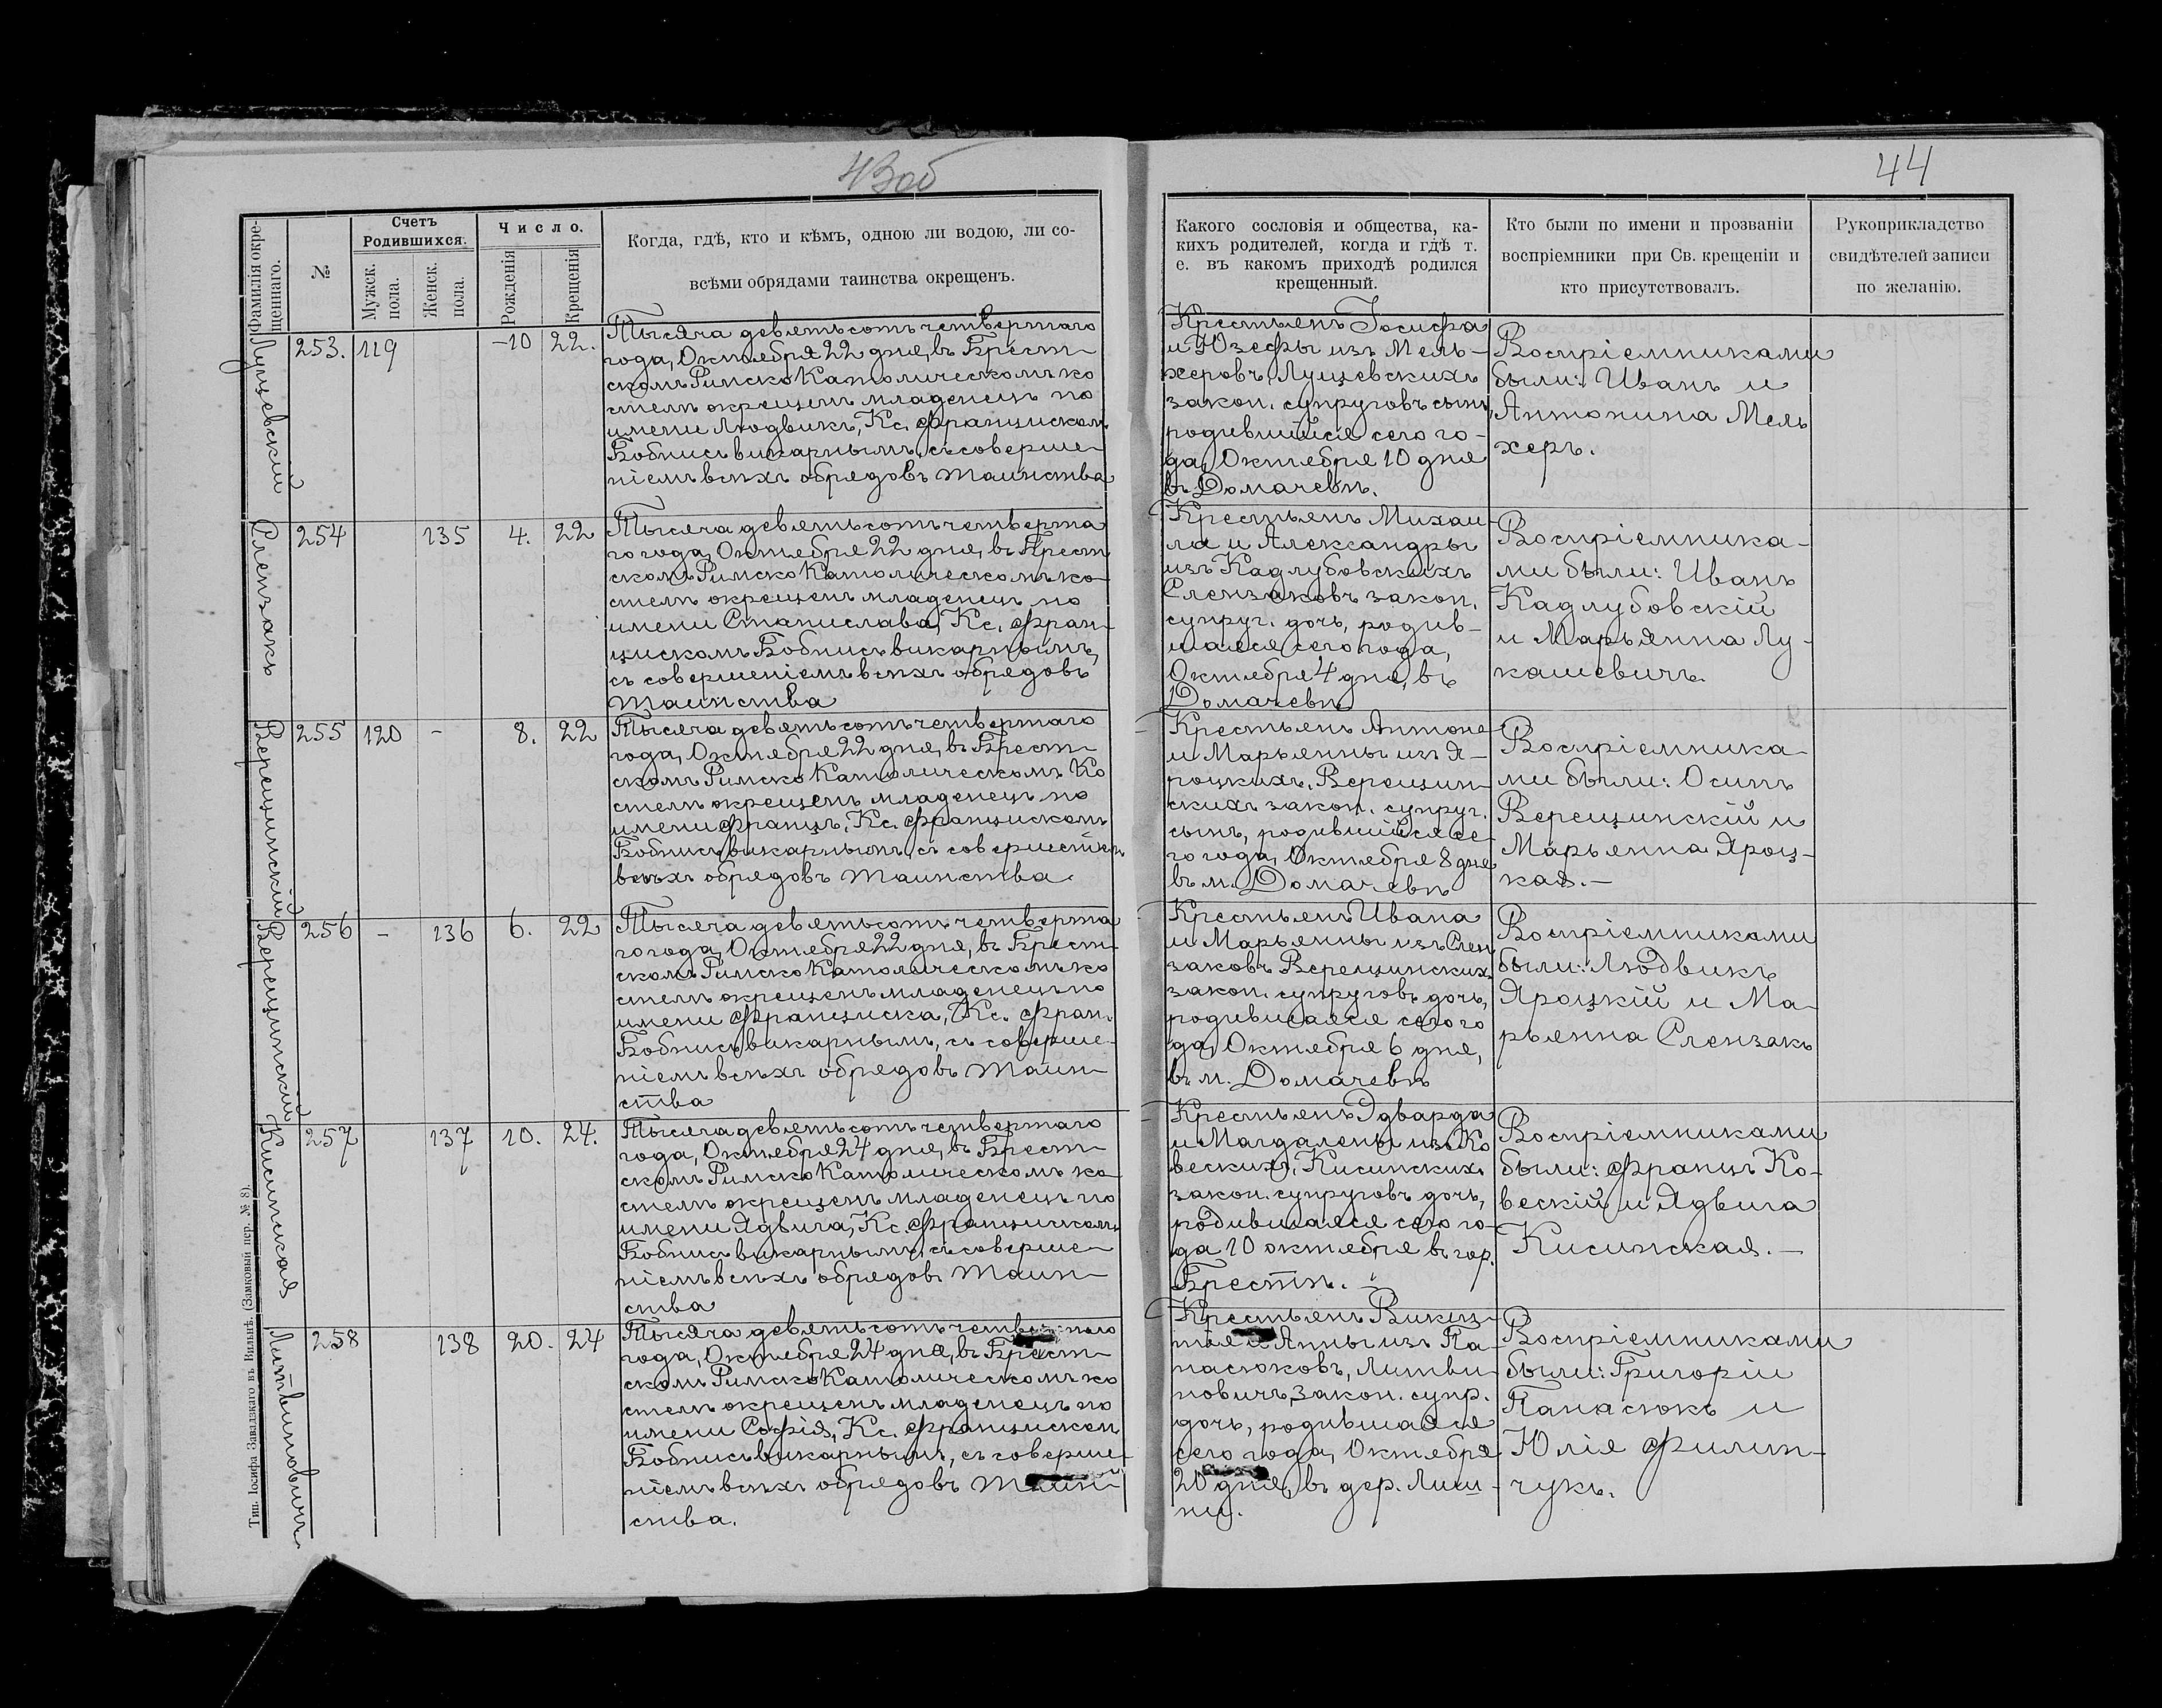 43об
44
Фамилія окре-
щеннаго.
№
Счетъ
Родившихся.
Мужск.
пола.
Женск.
пола.
Число.
Рожденія
Крещенія
Когда, гдѣ, кто и кѣмъ, одною ли водою, ли со-
всѣми обрядами таинства окрещенъ.
Какого сословія и общества, ка-
кихъ родителей, когда и гдѣ т.
е. въ какомъ приходѣ родился
крещенный.
Кто были по имени и прозванію
воспріемники при Св. крещеніи и
кто присутствовалъ.
Рукоприкладство
свидѣтелей записи
по желанію.
Лущевскій
253. 119 -10 22.
Тысяча девятьсотъ четвертаго
года, Октября 22 дня, въ Брест-
скомъ Римско Католическомъ ко
стелѣ окрещенъ младенецъ по
имени Людвикъ, Кс. Францискомъ
Бобнисъ викарнымъ, съ соверше-
ніемъ всѣхъ обрядовъ таинства
Крестьянъ Іосифа
и Юзефы изъ Мель-
херовъ, Лущевскихъ
закон. супруговъ сынъ,
родившійся сего го-
да, Октября 10 дня
въ Домачевѣ.
Воспріемниками
были: Иванъ и
Антонина Мель
херъ.
Слензакъ
254 135 4. 22
Тысяча девятьсотъ четверта
го года, Октября 22 дня, въ Брест
скомъ Римско Католическомъ ко-
стелѣ окрещенъ младенецъ по
имени Станислава, Кс. Фран-
цискомъ Бобнисъ викарнымъ,
съ совершеніемъ всѣхъ обрядовъ
таинства
Крестьянъ Михаи-
ла и Александры
изъ Кадлубовскихъ
Слензаковъ закон.
супруг. дочь, родив-
шаяся сего года,
Октября 4 дня, въ
Домачевѣ
Воспріемника-
ми были: Иванъ
Кадлубовскій
и Марьянна Лу-
кашевичъ.
Верещинскій
255 120 - 8. 22
Тысяча девятьсотъ четвертаго
года, Октября 22 дня, въ Брест-
скомъ Римско Католическомъ Ко
стелѣ окрещенъ младенецъ по
имени Францъ, Кс. Францискомъ
Бобнисъ викарнымъ, съ совершеніемъ
всѣхъ обрядовъ таинства.
Крестьянъ Антона
и Марьянны изъ Я-
роцкихъ, Верещин-
скихъ закон. супруг.
сынъ, родившійся се-
го года, Октября 8 дня
въ м. Домачевѣ
Воспріемника-
ми были: Осипъ
Верещинскій и
Марьянна Яроц-
кая.-
Верещинскій
256 - 136 6. 22
Тысяча девятьсотъ четверта
го года, Октября 22 дня, въ Брест-
скомъ Римско Католическомъ ко
стелѣ окрещенъ младенецъ по
имени Франциска, Кс. Фран.
Бобнисъ викарнымъ, съ соверше-
ніемъ всѣхъ обрядовъ таин-
ства
Крестьянъ Ивана
и Марьянны изъ Слен
заковъ Верещинскихъ
закон. супруговъ дочь,
родившаяся сего го
да, Октября 6 дня,
въ м. Домачевѣ
Воспріемниками
были: Людвикъ
Яроцкій и Ма-
рьянна Слензакъ
Кисинская
257 137 10. 24.
Тысяча девятьсотъ четвертаго
года, Октября 24 дня, въ Брест-
скомъ Римско Католическомъ ко-
стелѣ окрещенъ младенецъ по
имени Ядвига, Кс. Францискомъ
Бобнисъ викарнымъ, съ соверше-
ніемъ всѣхъ обрядовъ таин-
ства
Крестьянъ Эдварда
и Магдалены изъ Ко
вескихъ, Кисинскихъ
закон. супруговъ дочь,
родившаяся сего го-
да 10 октября въ гор.
Брестѣ.-
Воспріемниками
были: Францъ Ко-
вескій и Ядвига
Кисинская.-
Литвиновичъ
258 138 20. 24
Тысяча девятьсотъ четвертаго
года, Октября 24 дня, въ Брест-
скомъ Римско Католическомъ ко
стелѣ окрещенъ младенецъ по
имени Софія, Кс. Францискомъ
Бобнисъ викарнымъ, съ соверше-
ніемъ всѣхъ обрядовъ таин-
ства.
Крестьянъ Викен-
тія и Анны изъ Па-
насюковъ, Литви
новичъ, закон. супр.
дочь, родившаяся
сего года, Октября
20 дня, въ дер. Лиш-
ни.
Воспріемниками
были: Григорій
Панасюкъ и
Юлія Филип-
чукъ.
Тип. Іосифа Завадзкаго въ Вильнѣ. (Замковый пер. № 8).